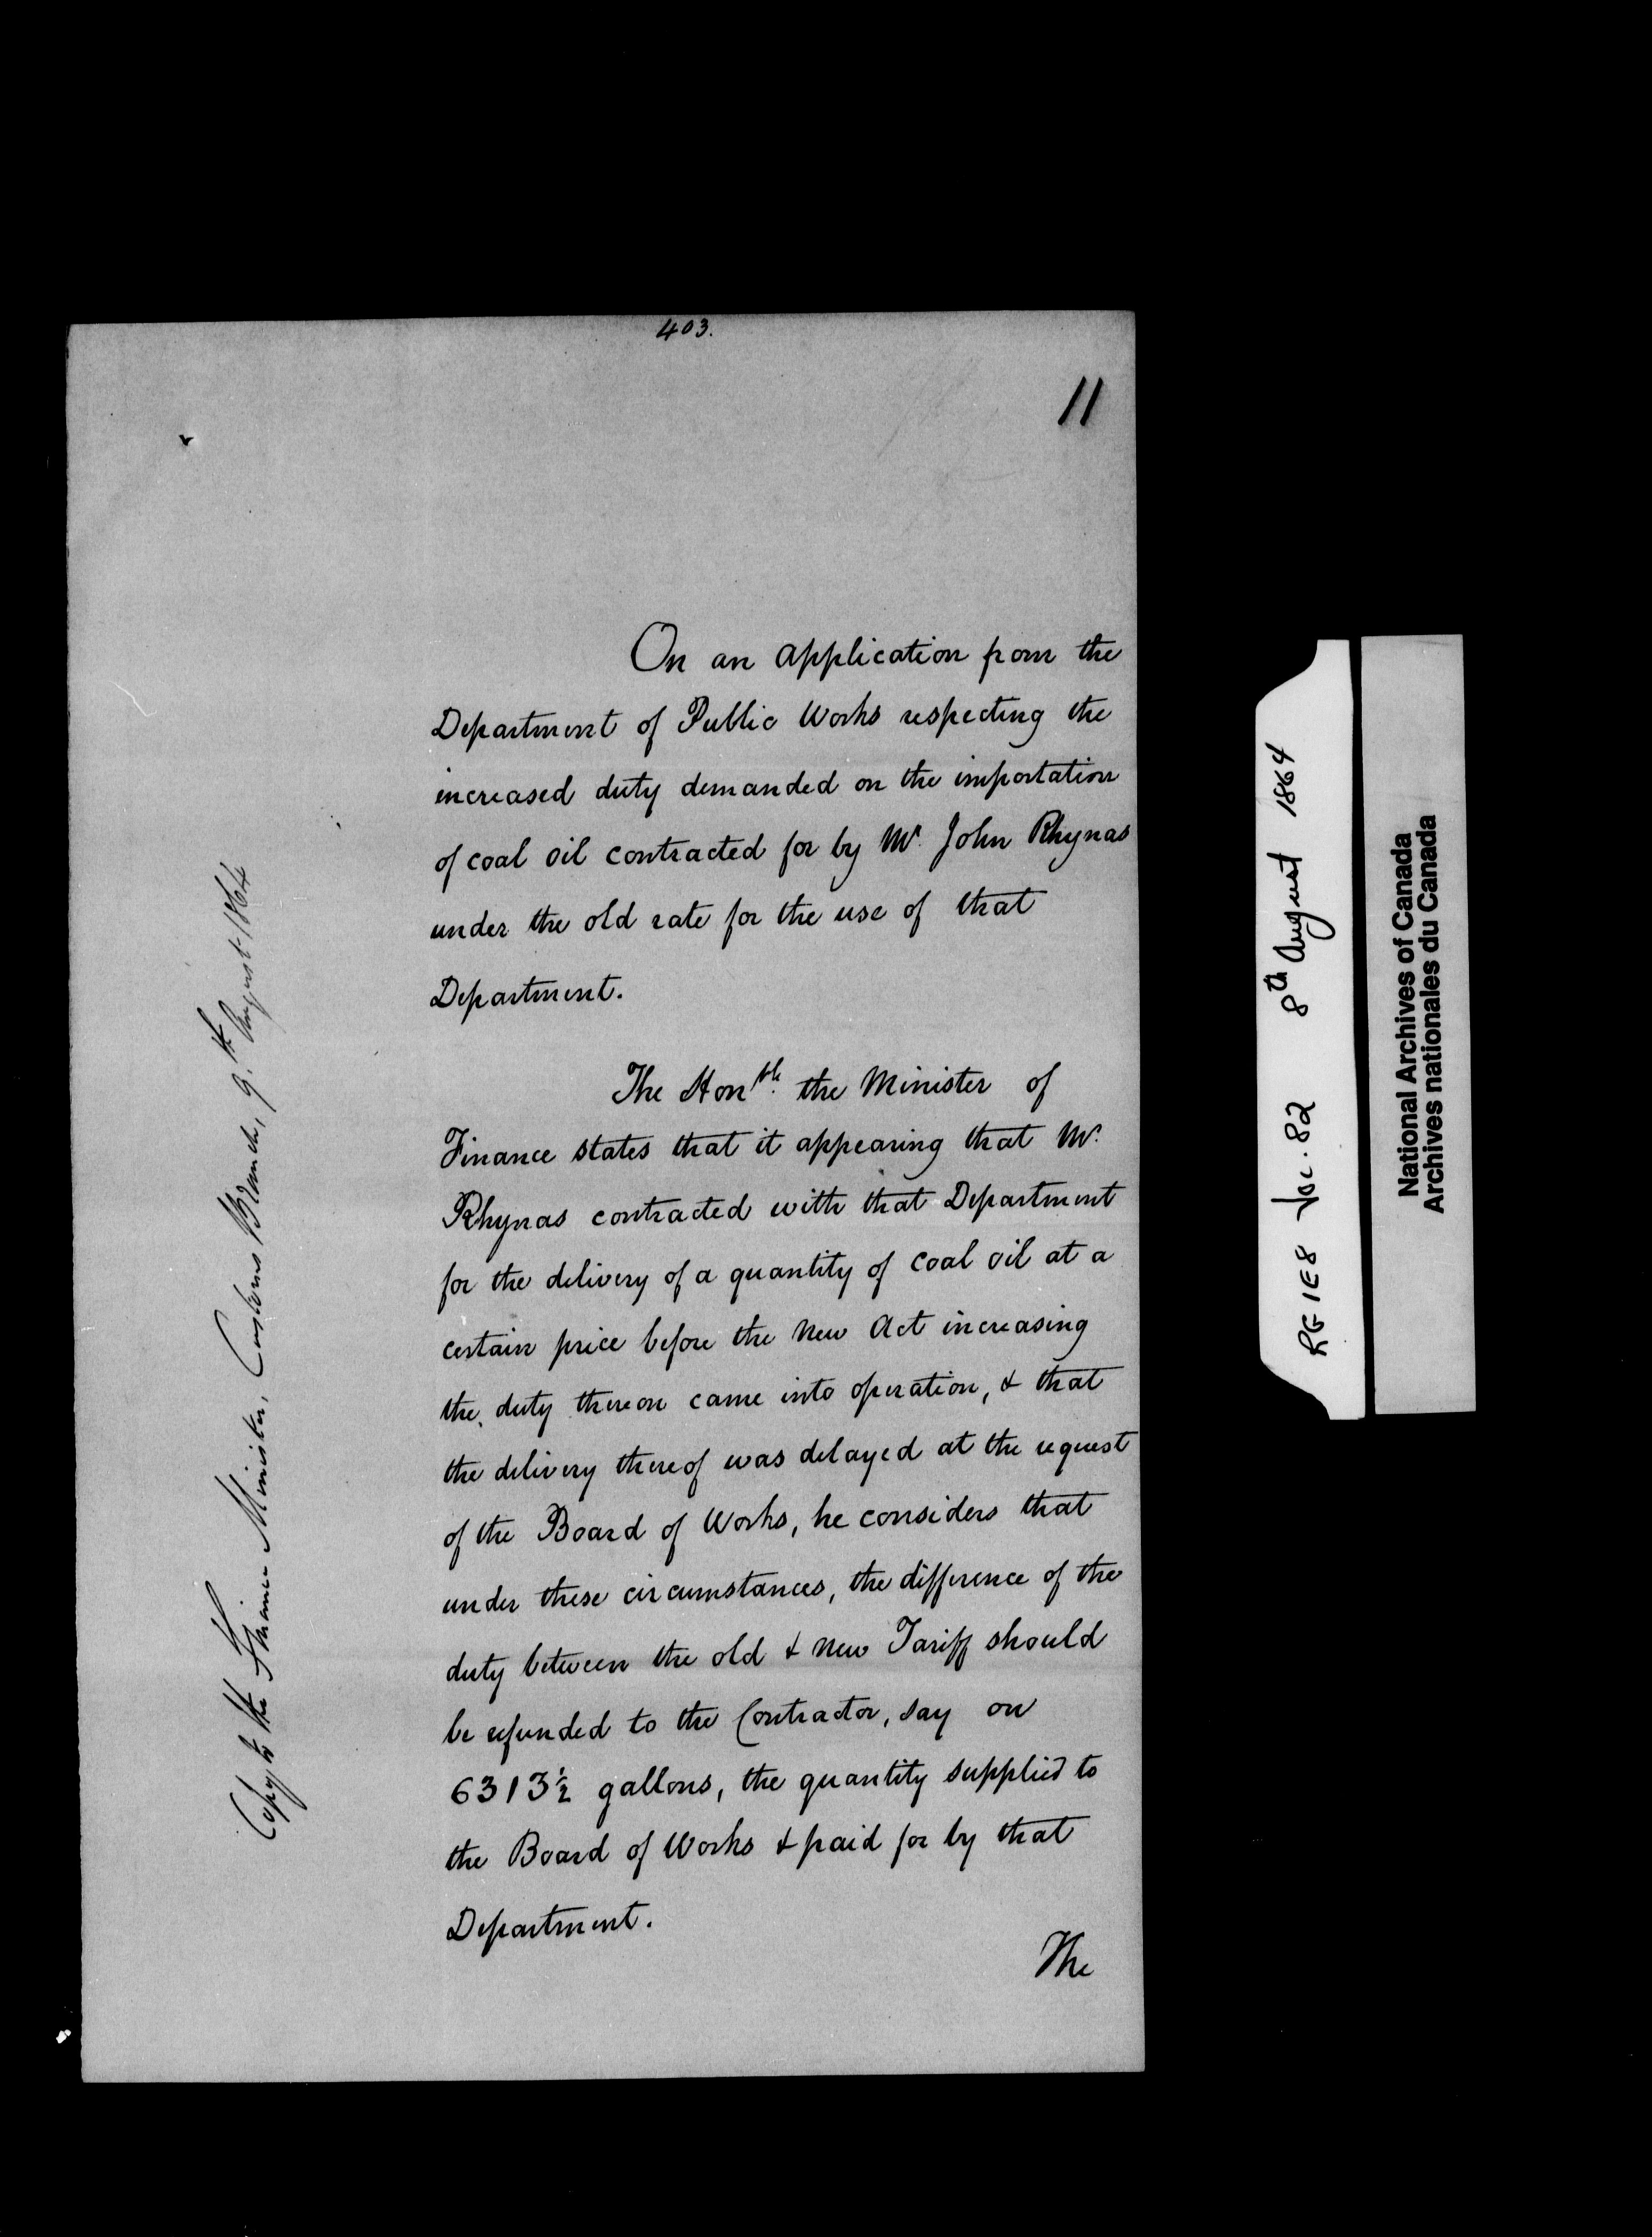 403.
11
On an application from the
Department of Public Works respecting the
increased duty demanded on the importation
of coal oil contracted for by Mr. John Rhynas
under the old rate for the use of that
Department.
The Honble. the Minister of
Finance states that it appearing that Mr.
Rhynas contracted with that Department
for the delivery of a quantity of coal oil at a
certain price before the new Act increasing
the duty thereon came into operation, & that
the delivery thereof was delayed at the request
of the Board of Works, he considers that
under these circumstances, the difference of the
duty between the old & new Tariff should
be refunded to the Contractor, say on
6313½ gallons, the quantity supplied to
the Board of Works & paid for by that
Department.
The
Copy to the Finance Minister, Customs Branch, 9.th August 1864
RG 1E8 Vol. 82 8th August 1864
National Archives of Canada
Archives nationales du Canada